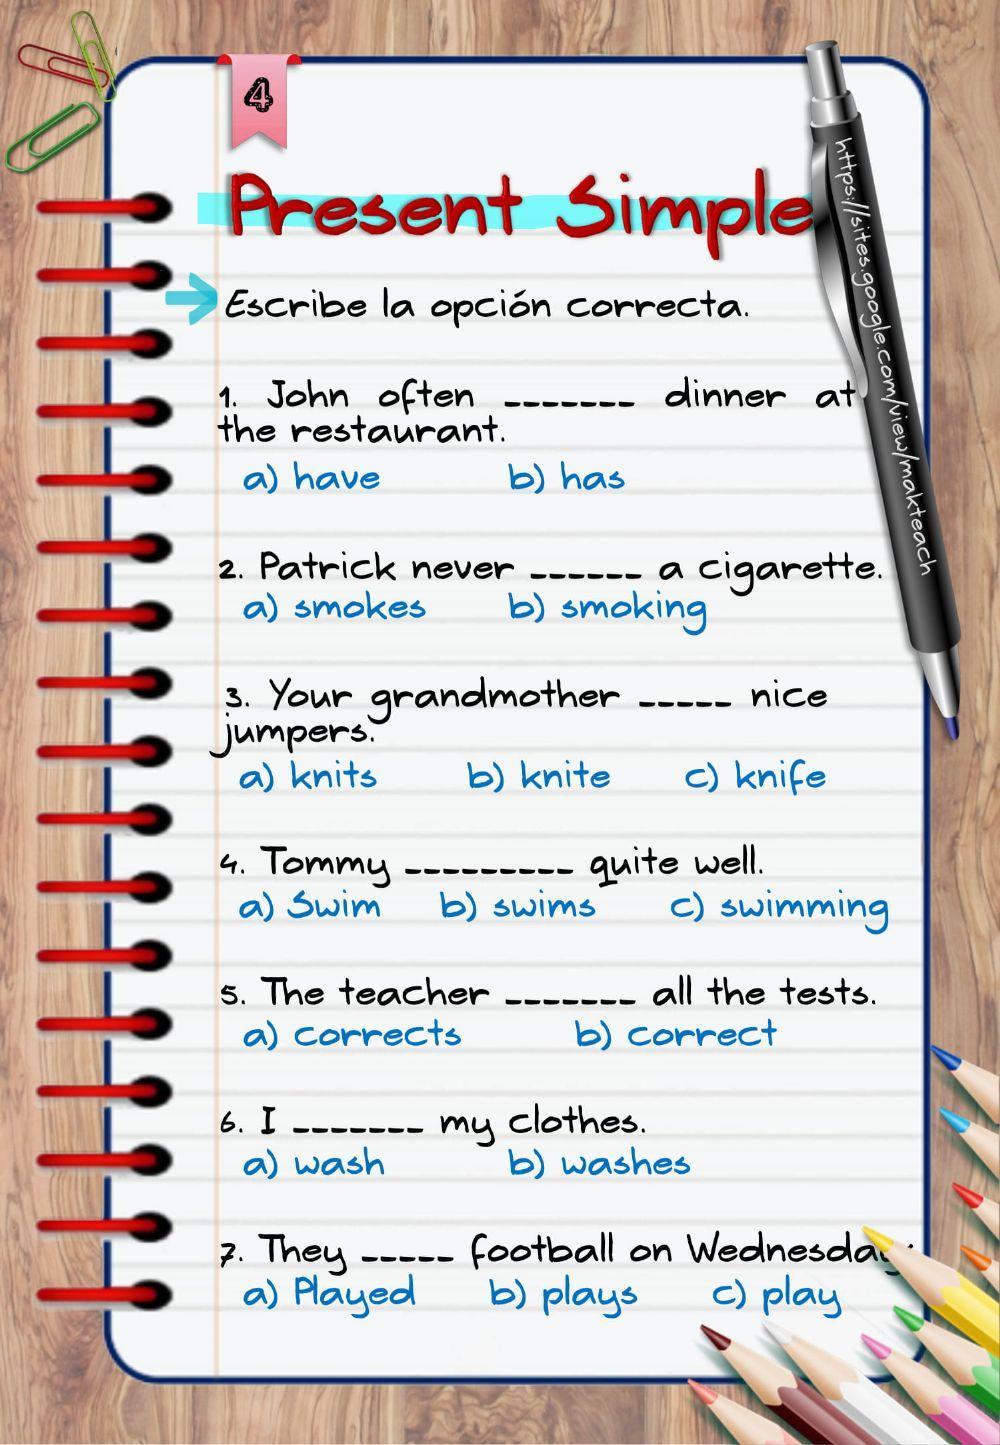 4
Present Simple
Escribe la opción correcta.
1. John often _______ dinner at
the restaurant.
a) have b) has
2. Patrick never ______ a cigarette.
a) smokes b) smoking
3. Your grandmother _____ nice
jumpers.
a) knits b) knite c) knife
4. Tommy _________ quite well.
a) Swim b) swims c) swimming
5. The teacher _______ all the tests.
a) corrects b) correct
6. I _______ my clothes.
a) wash b) washes
7. They _____ football on Wednesdays.
a) Played b) plays c) play
https://sites.google.com/view/makteach